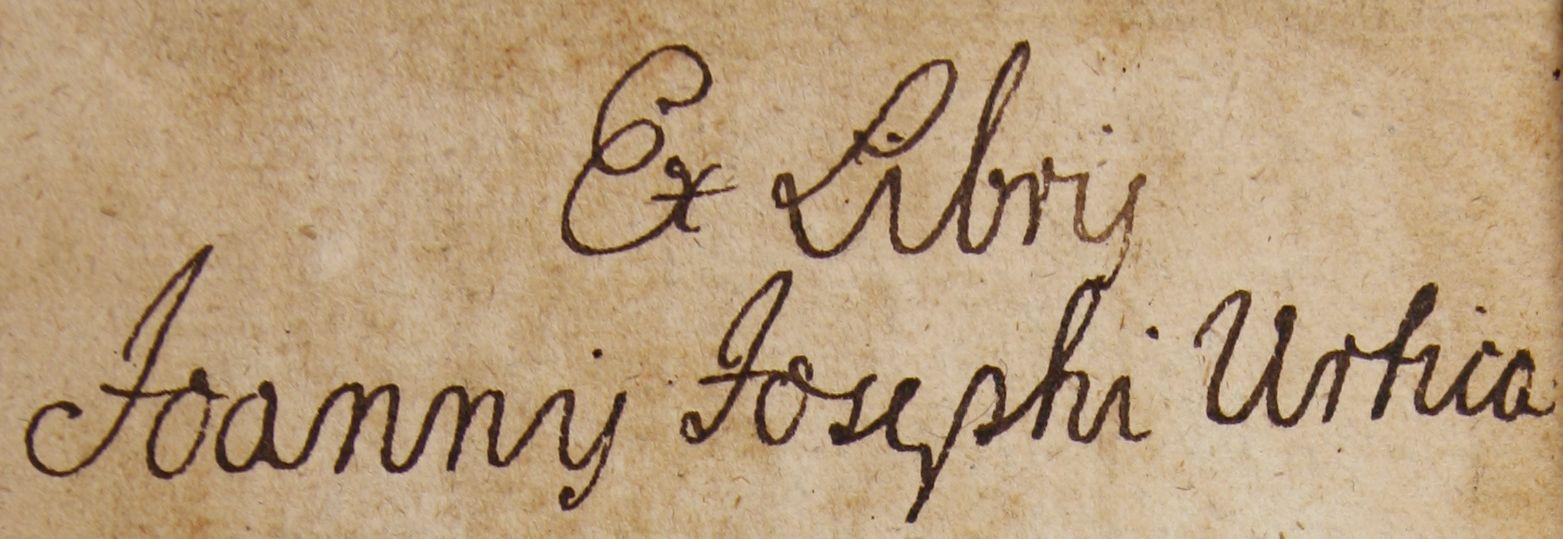 Ex Libris
Joannis Josephi Urtica